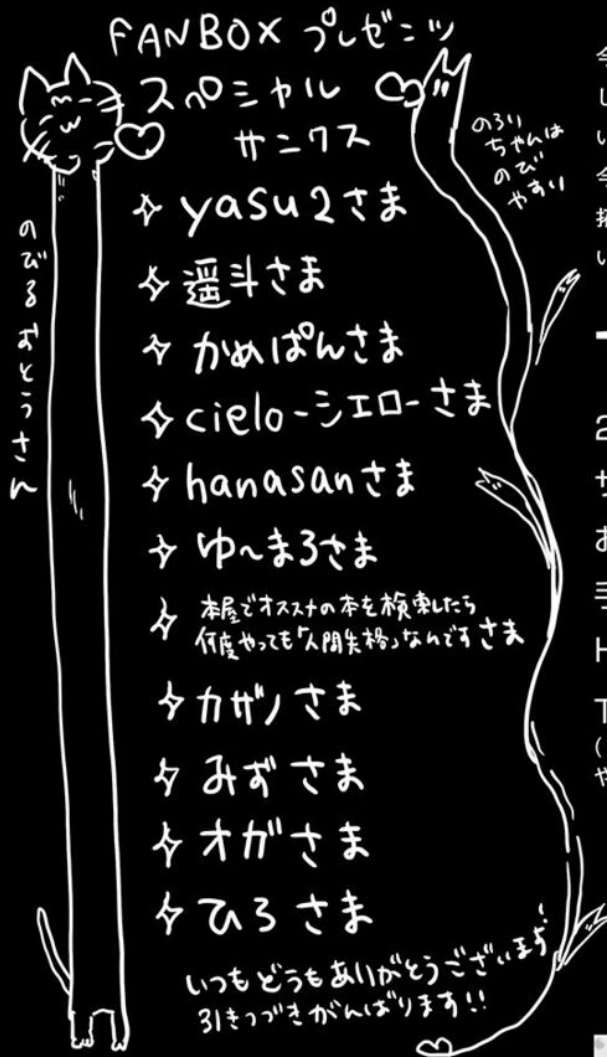 FANBOX プレゼンツ
スペシャル
サンクス
のろい
ちゃんは
のび
やすい
のびるおとうさん
yasu2さま
遥斗さま
かめぱんさま
cielo-シエロ-さま
hanasanさま
ゆ〜まろさま
本屋でオススメの本を検索したら
何度やっても「人間失格」なんですさま
カザノさま
みずさま
オガさま
ひろさま
いつもどうもありがとうございます!
引きつづきがんばります!!